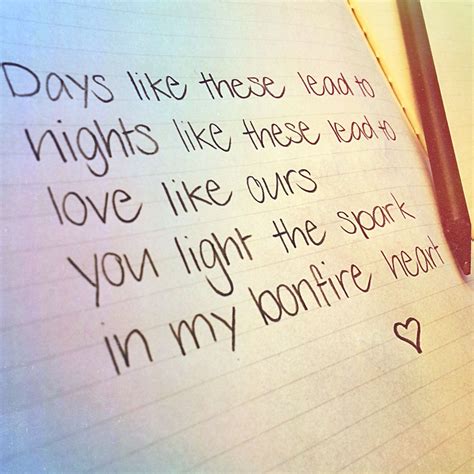 Days like these lead to
nights like these lead to
love like ours
you light the spark
in my bonfire heart